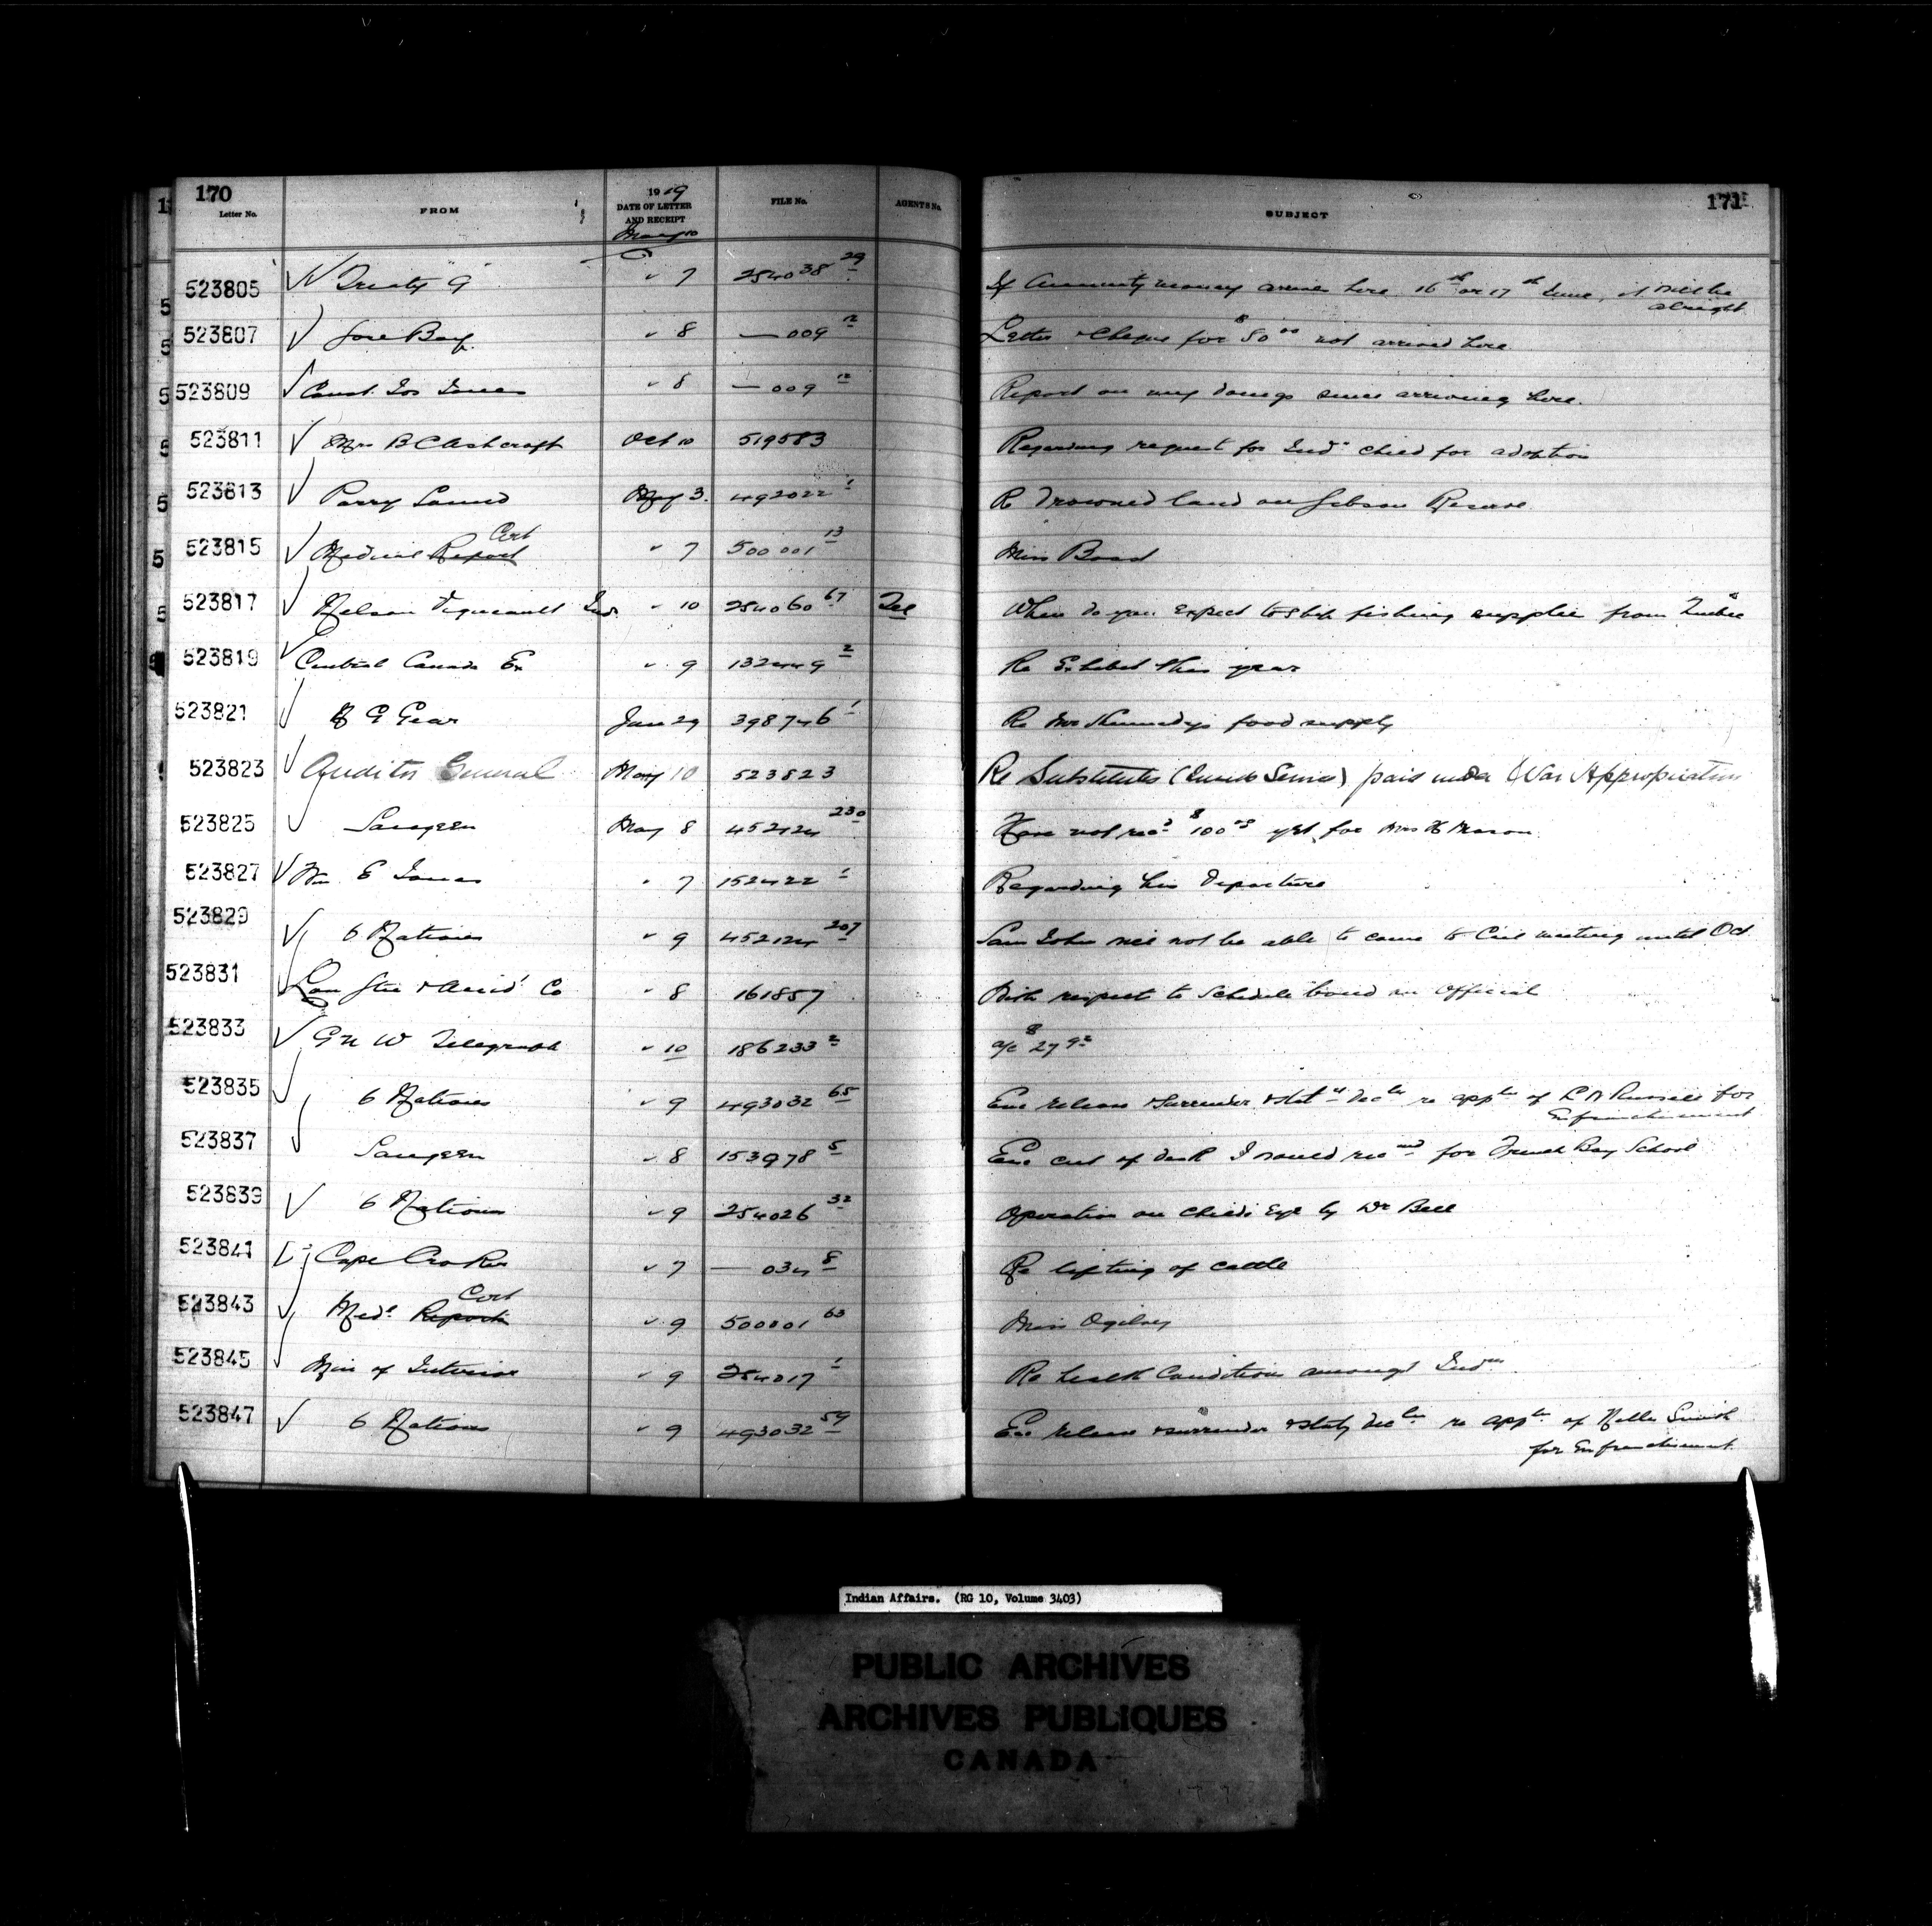 170
Letter No.
FROM
1919
DATE OF LETTER
AND RECEIPT
May 10
FILE No.
AGENTS No.
SUBJECT
171
523805 Treaty 9 " 7 254038 29 If Annuity money arrives here 16th or 17th June, it will be
alright
523807 " 8 — 009 12 Letter & Cheque for $80 00 not arrived here
523809 Const. Jos Jones " 8 — 009 12 Report on my doings since arriving here.
523811 Mrs B C Ashcroft Oct 10 519583 Regarding request for Indn child for adoption
523813 Parry Sound May 3. 492022 1 Re Drowned land on Gibson Reserve
Cert
523815 Medical Report " 7 500001 13 Miss Bond
523817 Nelson Vigneault Ind " 10 254060 67 Tel When do you expect to ship fishing supplies from Quebec
523819 Central Canada Ex " 9 132449 2 Re Exhibit this year
523821 Gear Jan 29 398746 1 Re Mr Kennedys food supply
523823 Auditor General May 10 523823 Re Substitutes (Inside Service) paid under War Appropriation
523825 Saugeen May 8 452124 230 Have not recd $100 00 yet for Mrs H Mason
523827 Wm E Jones " 7 152422 1 Regarding his Departure
523829 6 Nations " 9 452124 207 Sam John will not be able to come to Ccil meeting until Oct
523831 Lon Gtee & Accid Co " 8 161857 With respect to Schedule bond on Official
523833 G N W Telegraph " 10 186233 2 a/c $27 92
523835 6 Nations " 9 493032 65 Enc release & surrender & Staty Decln re appln of L D Russell for
Enfranchisement
523837 Saugeen " 8 153978 5 Enc cut of desk I would recmd for French Bay School
523839 6 Nations " 9 254026 32 Operation on childs Eye by Dr Bell
523841 Cape Croker " 7 — 034 8 Re lifting of cattle
Cert
523843 Medl Report " 9 500001 63 Miss Ogilvy
523845 Min of Interior " 9 254017 1 Re health Conditions amongst Indns
523847 6 Nations " 9 493032 59 Enc release & surrender & Staty Decln re appln of Smith
for Enfranchisement
Indian Affairs. (RG 10, Volume 3403)
PUBLIC ARCHIVES
ARCHIVES PUBLIQUES
CANADA